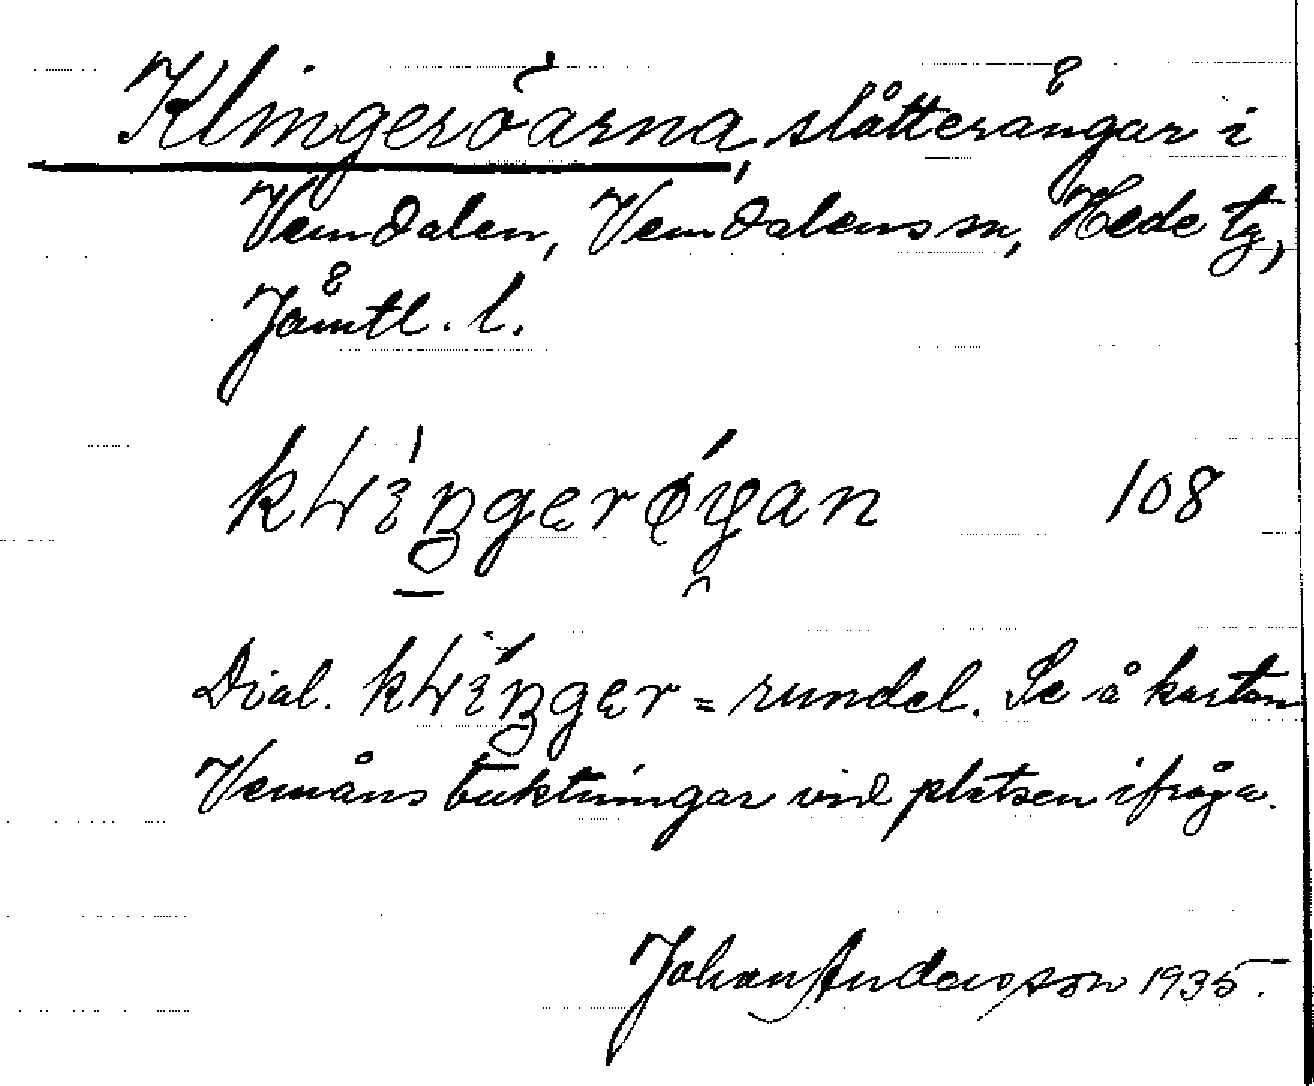 Klingeröarna, slåtterängar i
Vemdalen, Vemdalens sn, Hede tg,
Jämtl. l.
108
Dial. = rundel. Se å kartan
Vemåns buktningar vid platsen ifråga.
Johan Andersson 1935.